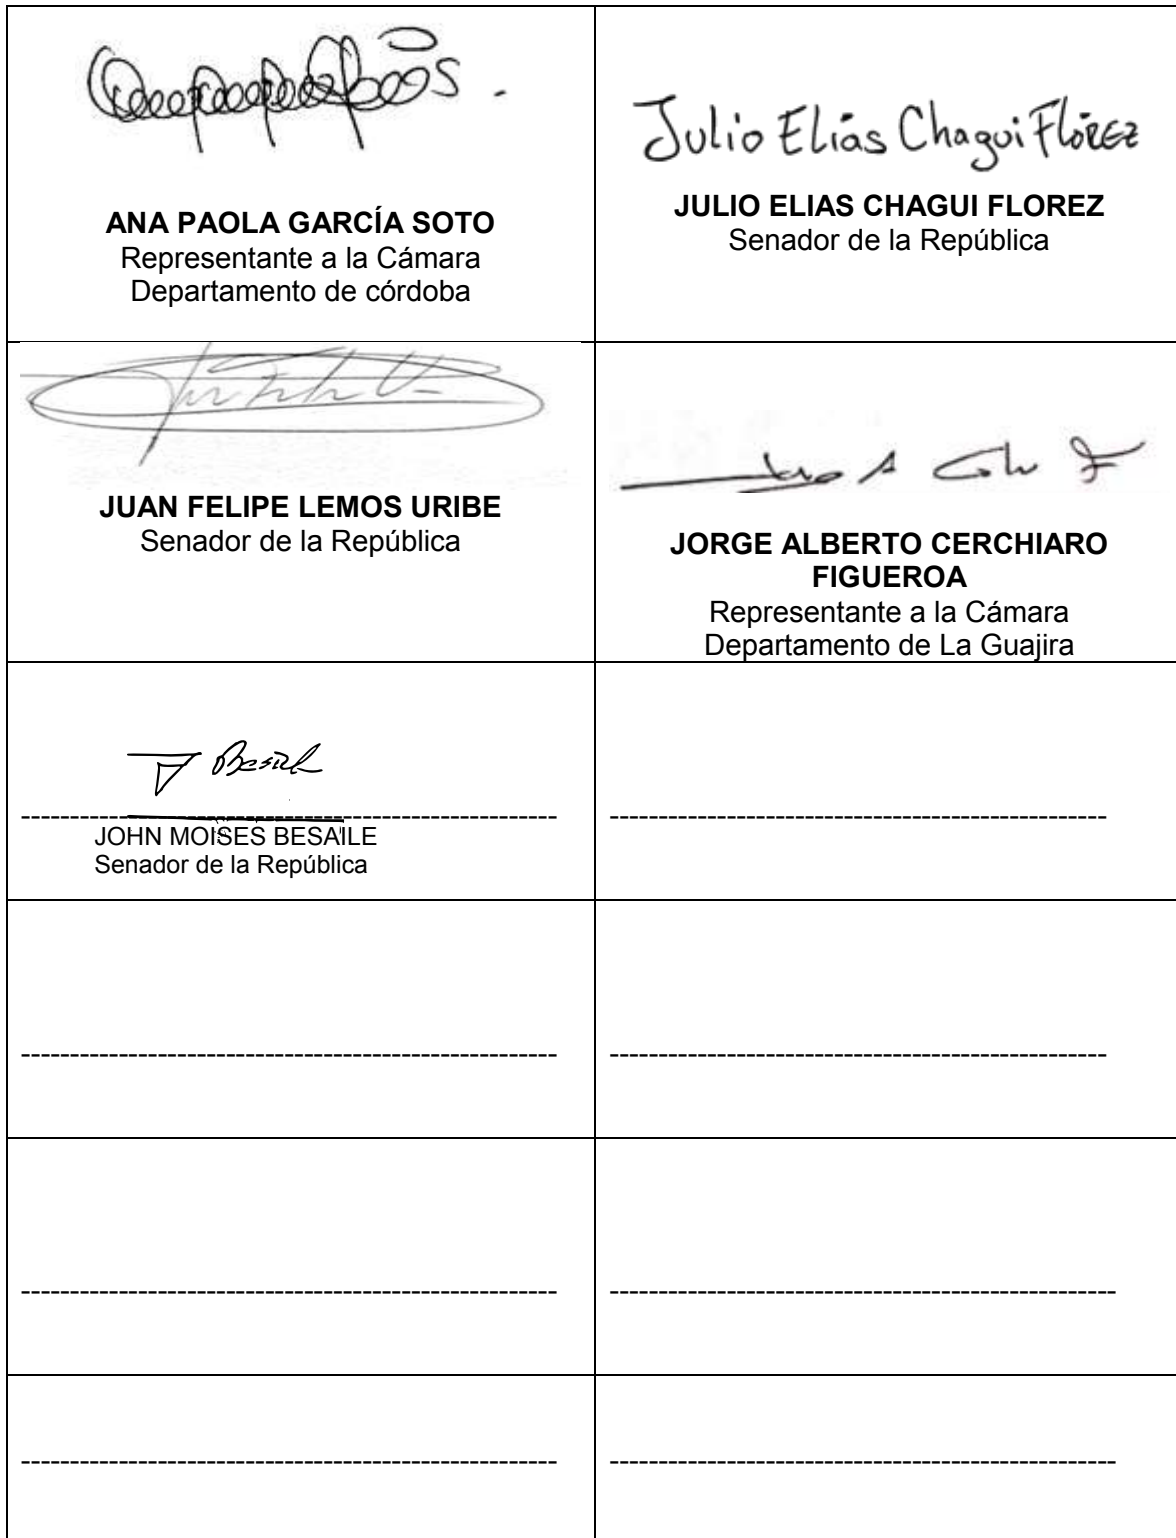 ANA PAOLA GARCÍA SOTO
Representante a la Cámara
Departamento de córdoba
Julio Elías Chagui Flórez
JULIO ELIAS CHAGUI FLOREZ
Senador de la República
JUAN FELIPE LEMOS URIBE
Senador de la República
JORGE ALBERTO CERCHIARO
FIGUEROA
Representante a la Cámara
Departamento de La Guajira
JOHN MOISES BESAILE
Senador de la República